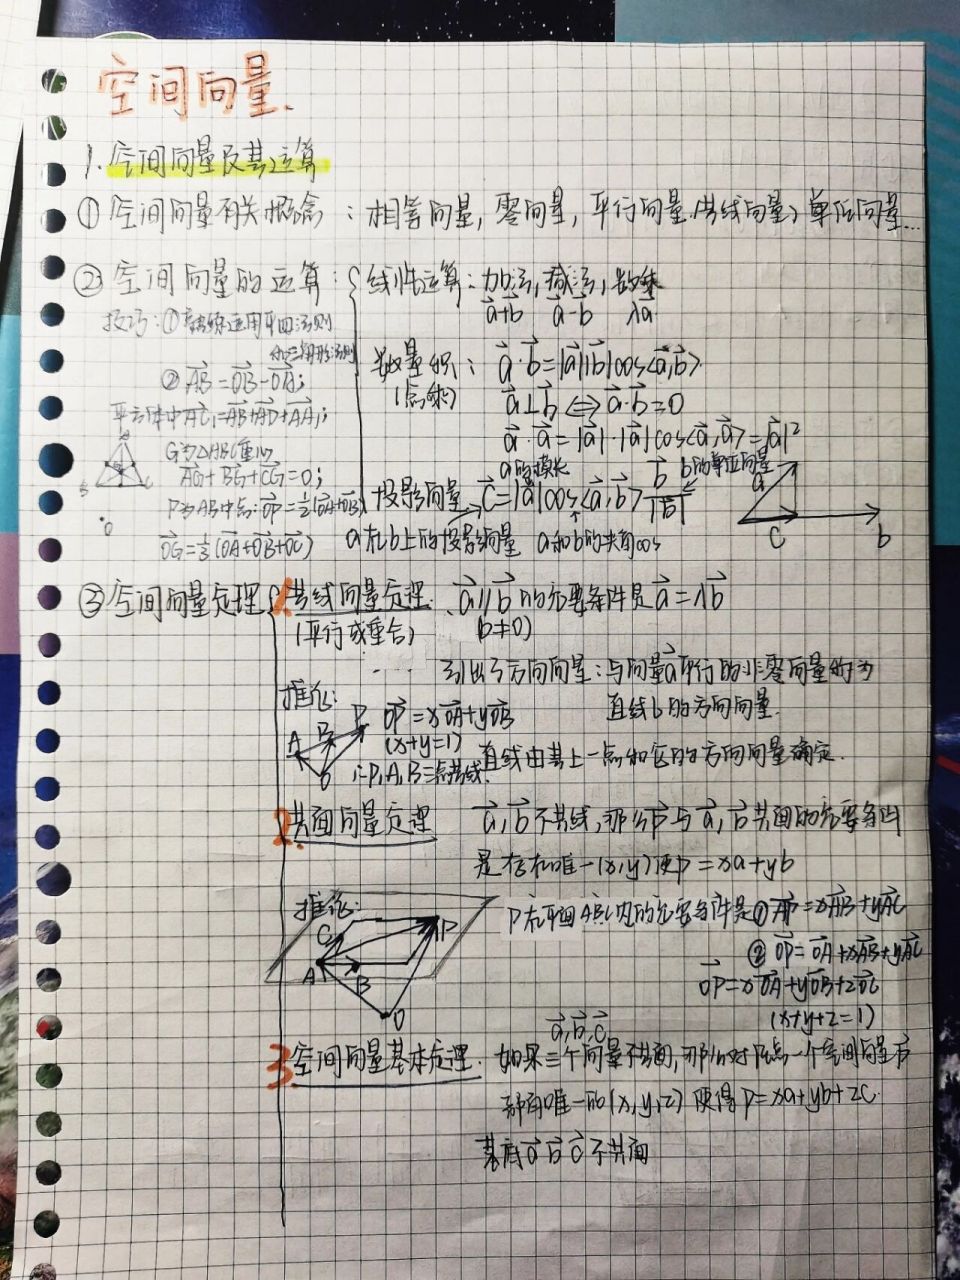 空间向量.
1. 空间向量及其运算
① 空间向量有关概念：相等向量，零向量，平行向量，共线向量，单位向量...
② 空间向量的运算：
线性运算：加法，减法，数乘
a+b a-b λa
技巧：① 熟练运用平四法则
和三角形法则
② AB=OB-OA;
平方体中AC₁=AB+AD+AA₁;
G为△ABC重心
AG+BG+CG=0;
P为AB中点:OP=½(OA+OB)
OG=⅓(OA+OB+OC)
数量积：a·b=|a||b|cos<a,b>
(点乘) a⊥b⇔a·b=0
a·a=|a|·|a|cos<a,a>=|a|²
a的模长 b的单位向量
投影向量 c=|a|cos<a,b> b/|b|
a在b上的投影向量 a和b的夹角cos
a
c b
③ 空间向量定理
1. 共线向量定理. a//b的充要条件是a=λb
(平行或重合) (b≠0)
引出了方向向量：与向量a平行的非零向量称为
直线b的方向向量.
推论:
OP=xOA+yOB
(x+y=1)
∴P,A,B三点共线.
A B P
O
直线由其上一点和它的方向向量确定.
2. 共面向量定理 a,b不共线,那么P与a,b共面的充要条件
是存在唯一(x,y)使p=xa+yb
推论:
C P
A B
O
P在平面ABC内的充要条件是① AP=xAB+yAC
② OP=OA+xAB+yAC
OP=xOA+yOB+zOC
(x+y+z=1)
a,b,c
3 空间向量基本定理. 如果三个向量不共面,那么对任意一个空间向量P
都有唯一的(x,y,z)使得p=xa+yb+zc.
基底a b c不共面